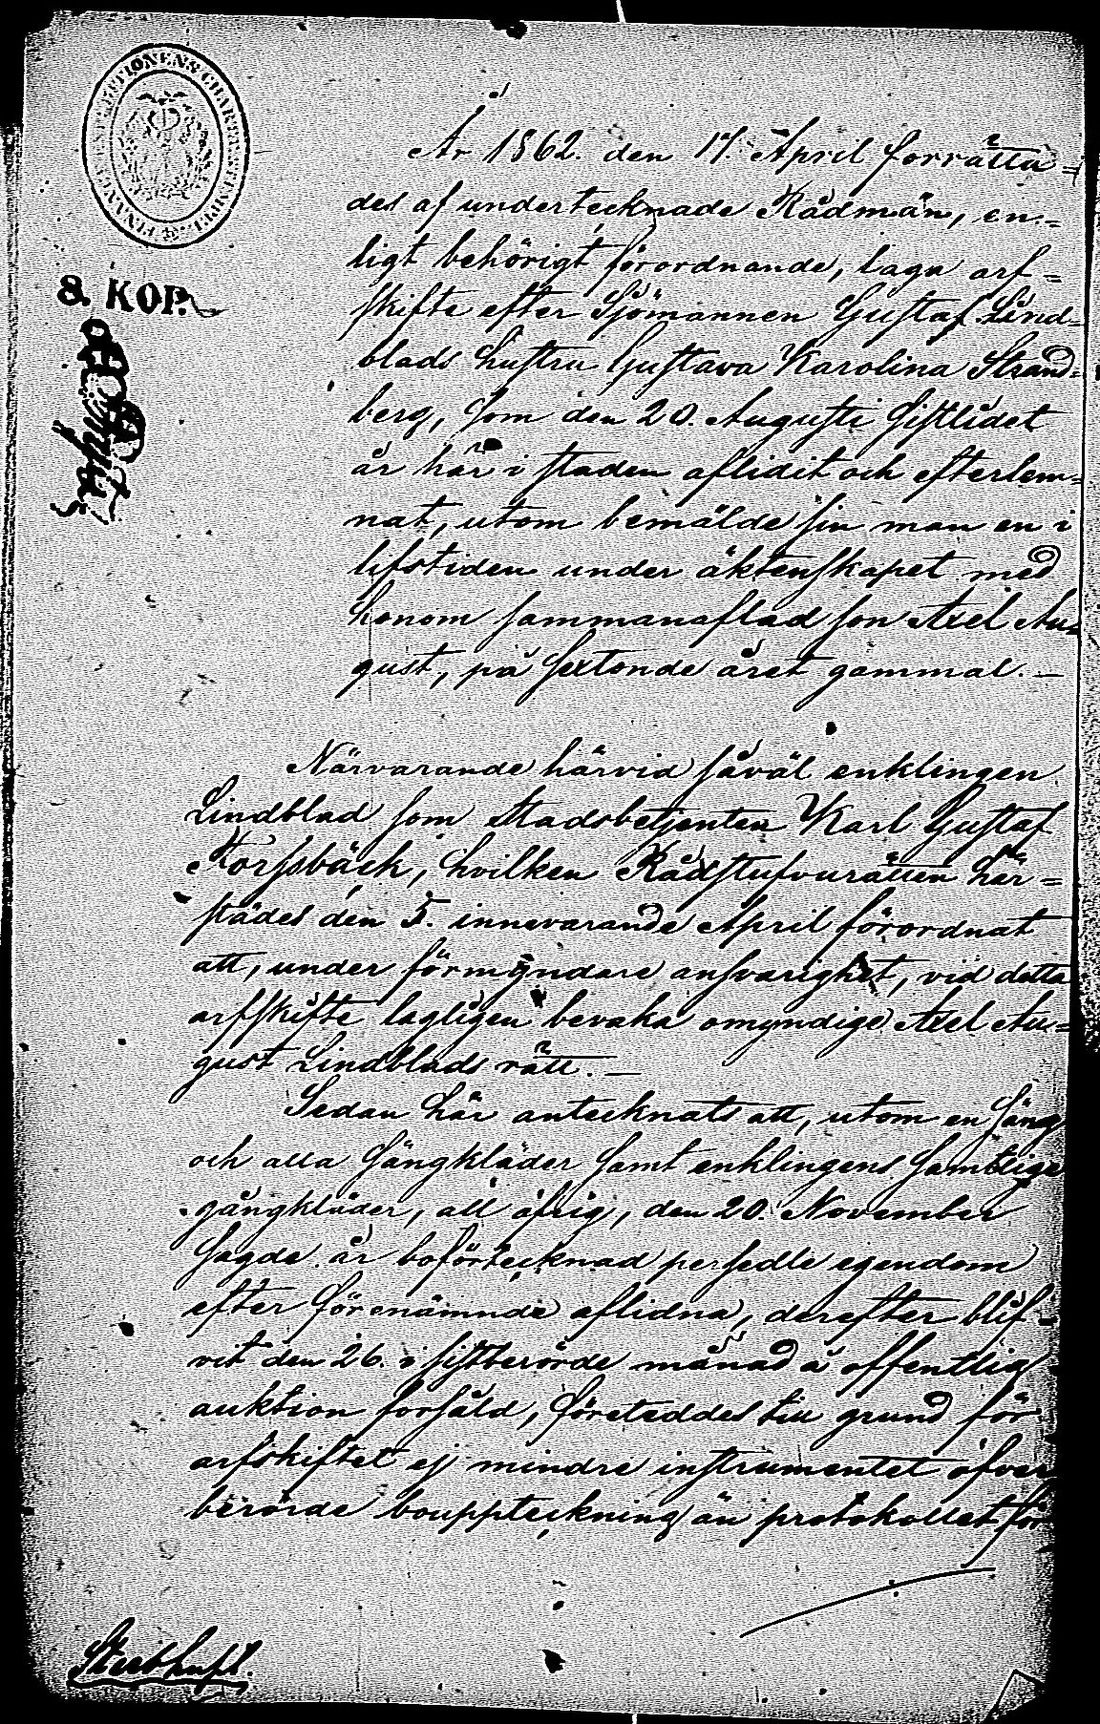 FINANCE EXPEDITIONENS CHARTÆ STEMPEL
8. KOP.
År 1862. den 17. April förrätta-
des af undertecknade Rådmän, en-
ligt behörigt förordnande, laga arf-
skifte efter Sjömannen Gustaf Lind-
blads hustru Gustava Karolina Strand-
berg, som den 20. Augusti sistlidet
år här i staden aflidit och efterlem-
nat, utom bemälde sin man en i
lifstiden under äktenskapet med
honom sammanaflad son Axel Au-
gust, på sextonde året gammal. —
Närvarande härvid såväl enklingen
Lindblad som Stadsbetjenten Karl Gustaf
Forssbäck, hvilken Rådstufvurätten här-
städes den 5. innevarande April förordnat
att, under förmyndare ansvarighet, vid detta
arfskifte lagligen bevaka omyndige Axel Au-
gust Lindblads rätt. —
Sedan här antecknats att, utom en säng
och alla sängkläder samt enklingens samtlige
gångkläder, all öfrig, den 20. November
sagde år boförtecknad persedle egendom
efter förenämnde aflidna, derefter blif-
vit den 26. i sistberörde månad å offentlig
auktion försåld, företeddes till grund för
arfskiftet ej mindre instrumentet öfver
berörde bouppteckning än protokollet för